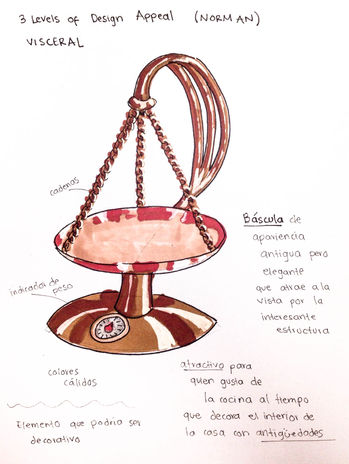 3 Levels of Design Appeal (NORMAN)
VISCERAL
cadenas
Báscula de
apariencia
antigua pero
elegante
que atrae a la
vista por la
interesante
estructura
indicador de
peso
colores
cálidos
Elemento que podría ser
decorativo
atractivo para
quien gusta de
la cocina al tiempo
que decora el interior de
la casa con antigüedades